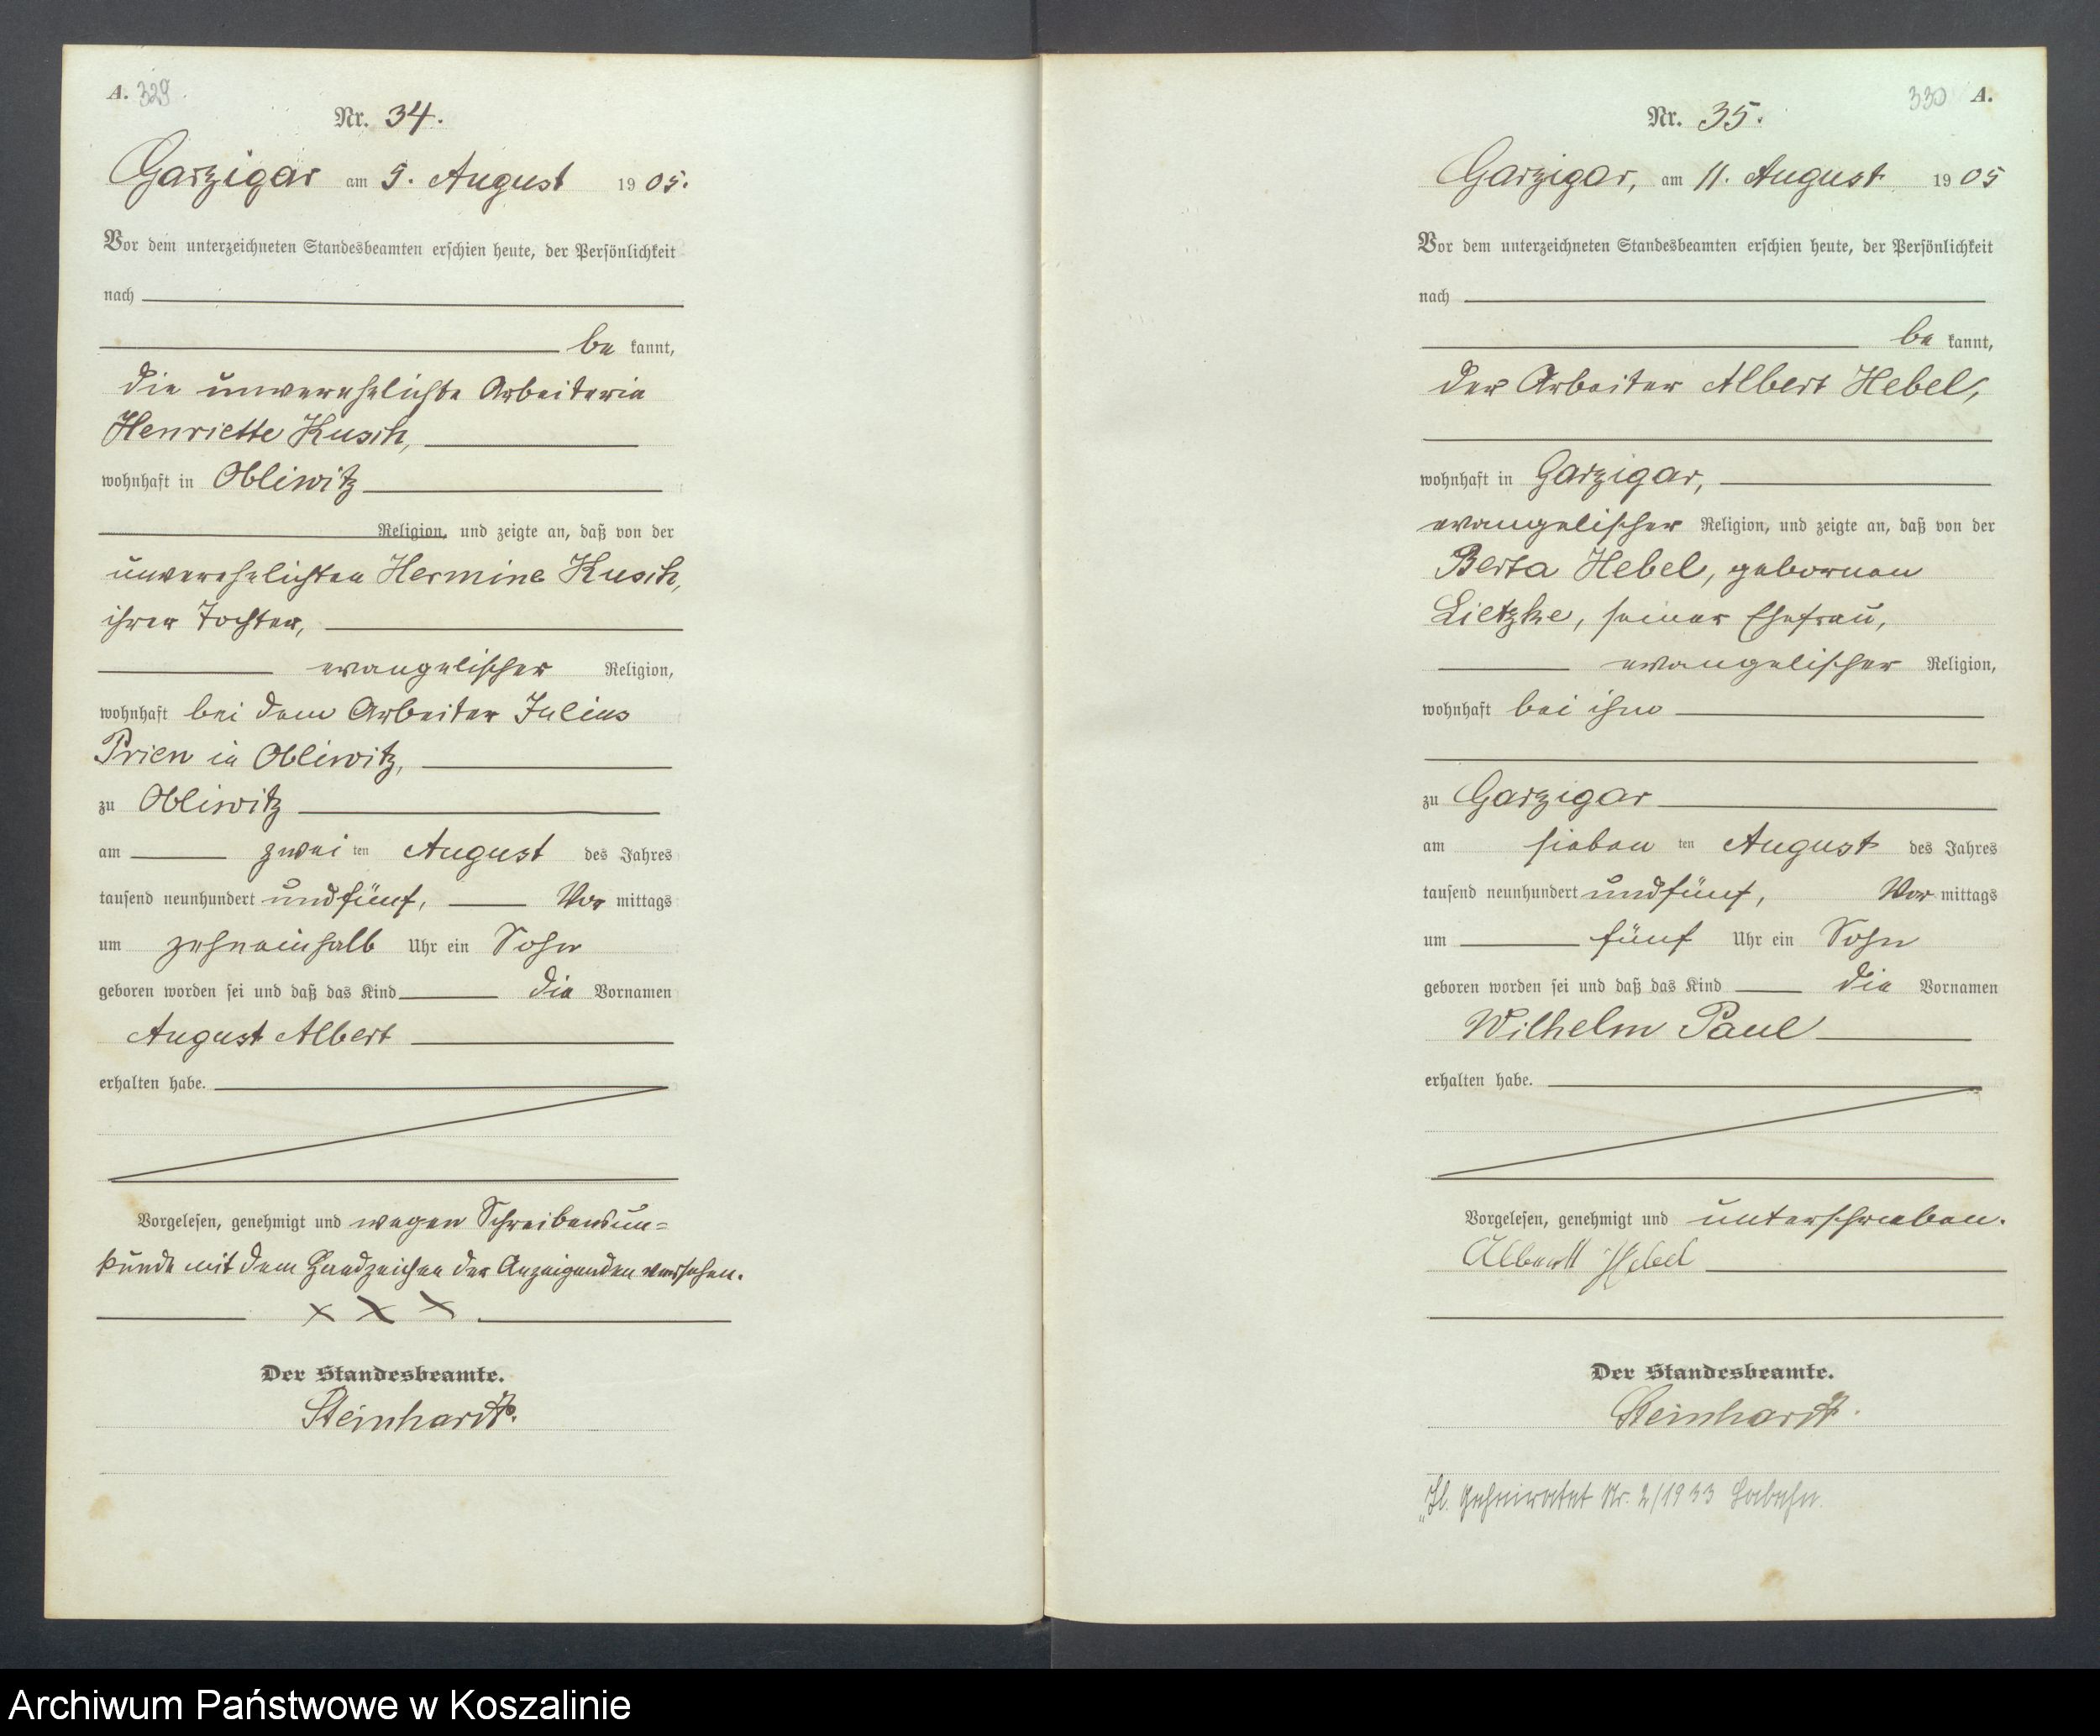 A. 329
Nr. 34.
Garzigar am 5. August 1905.
Vor dem unterzeichneten Standesbeamten erschien heute, der Persönlichkeit
nach
be kannt,
die unverehelichte Arbeiterin
Henriette Kusch,
wohnhaft in Obliwitz
Religion, und zeigte an, daß von der
unverehelichten Hermine Kusch,
ihrer Tochter,
evangelischer Religion,
wohnhaft bei dem Arbeiter Julius
Prien in Obliwitz,
zu Obliwitz
am zwei ten August des Jahres
tausend neunhundert undfünf, Vor mittags
um zehneinhalb Uhr ein Sohn
geboren worden sei und daß das Kind die Vornamen
August Albert
erhalten habe.
Vorgelesen, genehmigt und wegen Schreibensun=
kunde mit dem Handzeichen der Anzeigenden versehen.
x x x
Der Standesbeamte.
Steinhardt.
330 A.
Nr. 35.
Garzigar, am 11. August 1905
Vor dem unterzeichneten Standesbeamten erschien heute, der Persönlichkeit
nach
be kannt,
der Arbeiter Albert Hebel,
wohnhaft in Garzigar,
evangelischer Religion, und zeigte an, daß von der
Berta Hebel, gebornen
Lietzke, seiner Ehefrau,
evangelischer Religion,
wohnhaft bei ihm
zu Garzigar
am sieben ten August des Jahres
tausend neunhundert undfünf, Vor mittags
um fünf Uhr ein Sohn
geboren worden sei und daß das Kind die Vornamen
Wilhelm Paul
erhalten habe.
Vorgelesen, genehmigt und unterschrieben.
Albert Hebel
Der Standesbeamte.
Steinhardt.
geheiratet Nr. 2/1933 Labehn
Archiwum Państwowe w Koszalinie